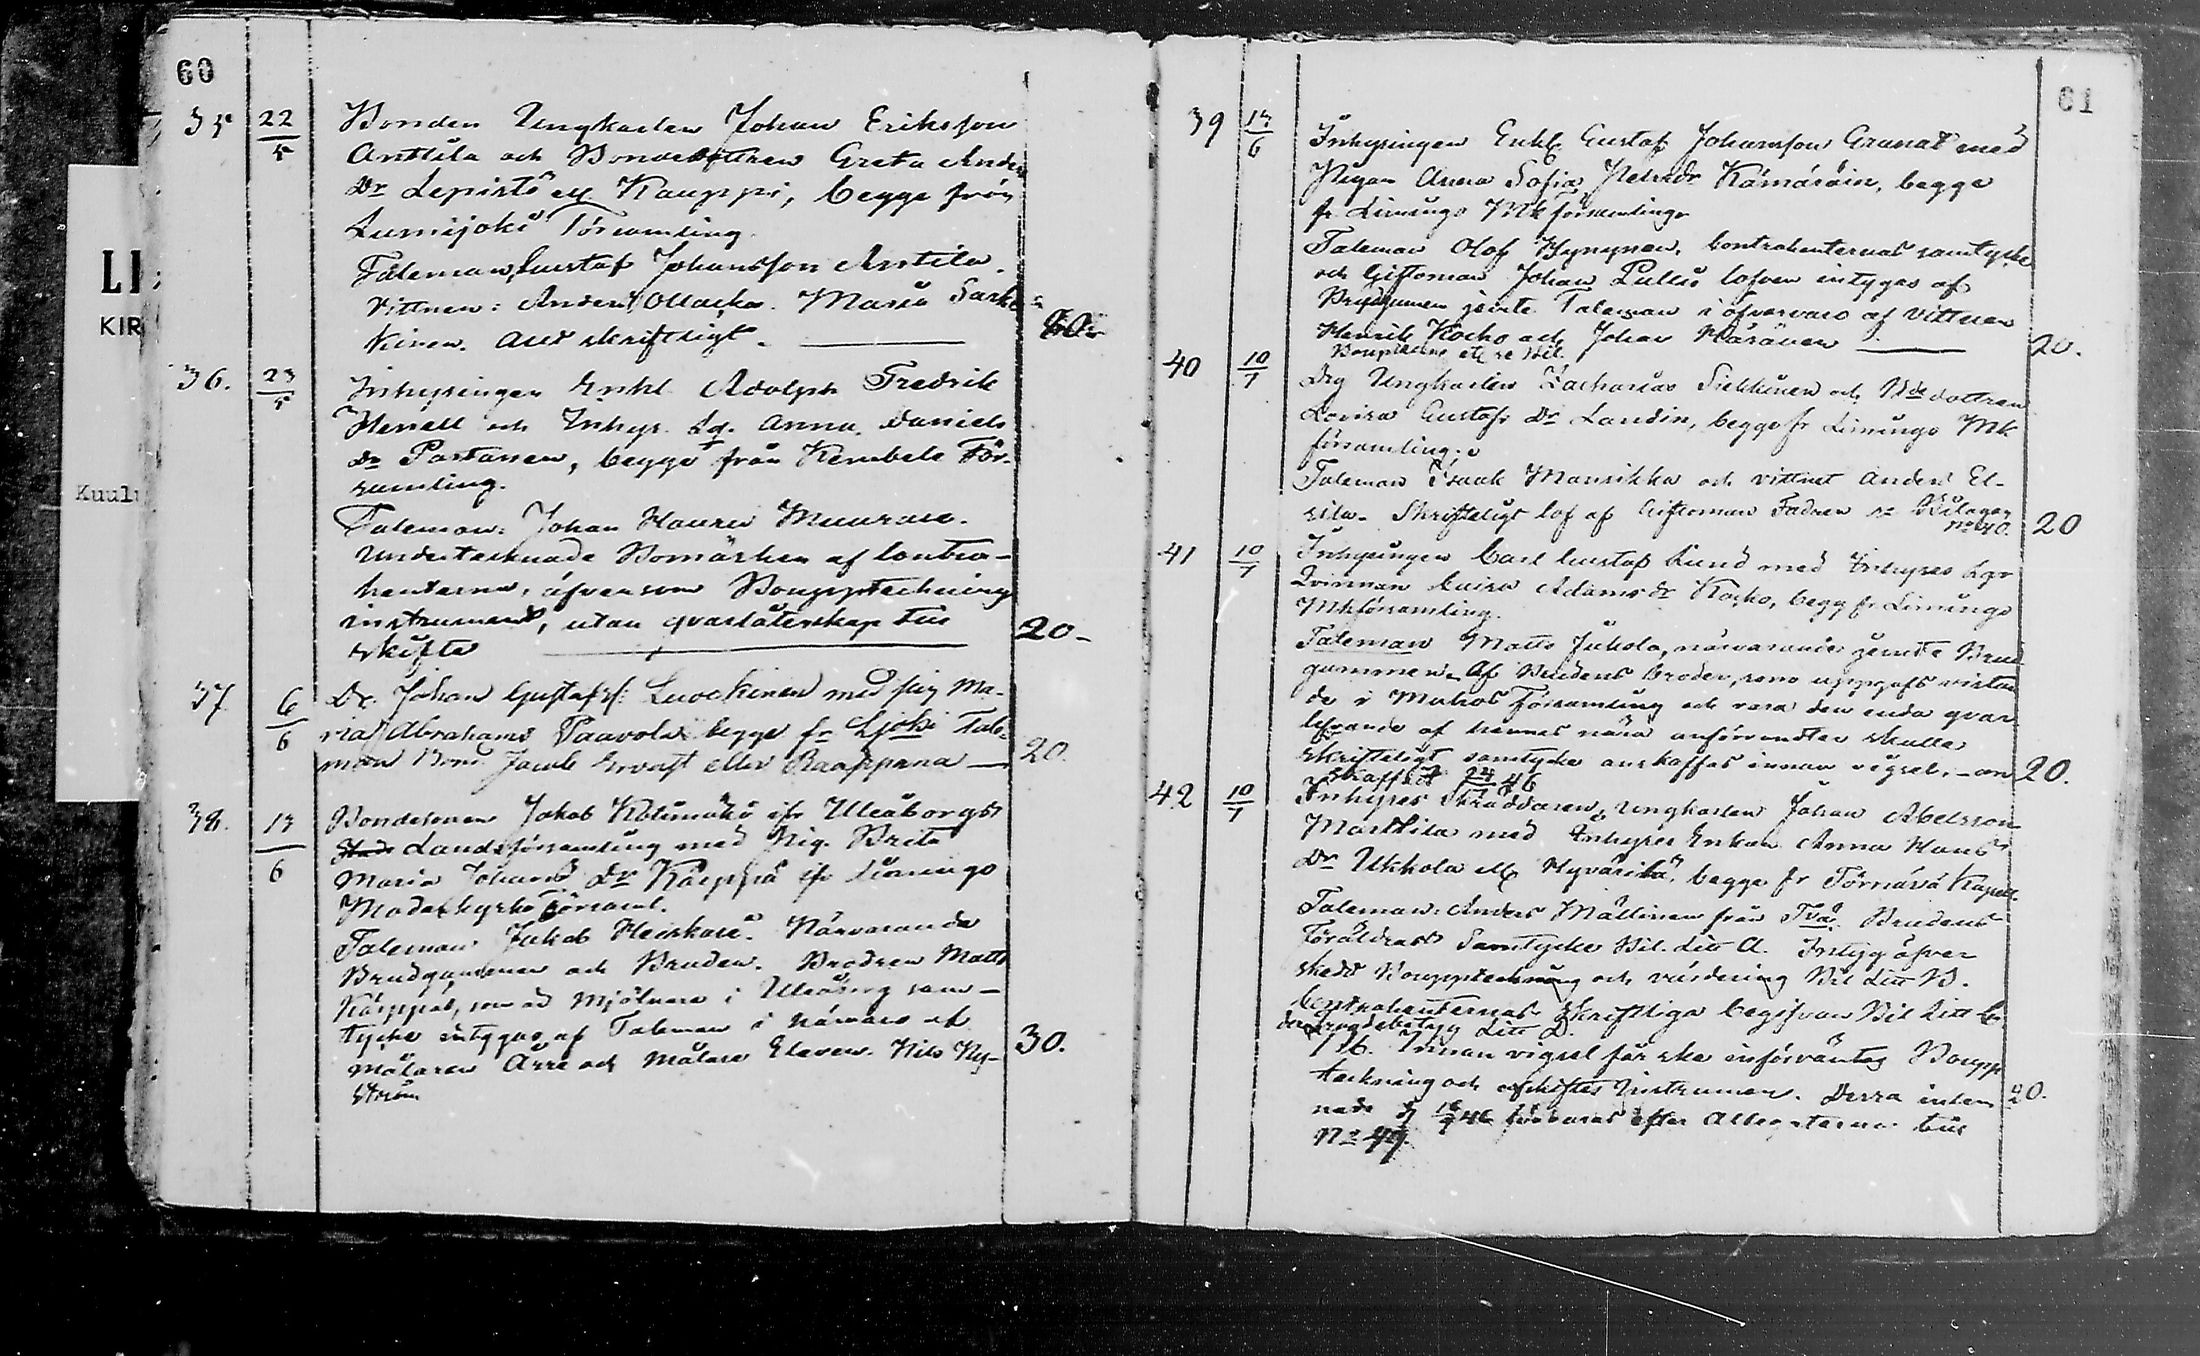 60
LI
KIR
Kuulu
35 22/5 Bonden Ungkarlen Johan Eriksson
Anttila och Bondedottren Greta Anders
Dr Lepistö ell Kauppi, begge från
Lumijoki Församling.
Taleman, Gustaf Johansson Anttila.
Vittnen: Anders Ollacka. Maria Sarki
kinen. Allt skriftligt.
36. 23/5 Inhysingen Enkl Adolph Fredrik
och Inhys. Anna Daniels
Dr Partanen, begge från Kembele För-
samling.
Taleman: Johan Muurase.
Undertecknade Bomärken af Contra-
henterna, äfvensom Boupptecknings
instrument, utan qvarlåtenskap till
skifte 20-
37 6/6 Dr. Johan Gustafss: Luockinen med pig Ma-
ria Abrahams Paavola begge fr Ljoki Tale-
man Bond. Jacob Ervast eller Raappana 20.
38. 13/6 Bondesonen Jakob Kotimäki ifr Uleåborgs
Stads Landsförsamling med Pig. Brita
Maria Johans Dr Käuppä ifr Limingo
Moderkyrko församl.
Taleman Jakob Heiskari. Närvarande
Brudgummen och Bruden. Brodren Matts
som är Mjölnare i Uleåborg sam-
tycke intygas af Taleman i närvaro af
målaren Arre och Målare Eleven Nils Ny-
ström 30.
61
39 13/6 Inhysingen Enkl Gustaf Johansson Granat med
Pigan Anna Sofia Petersdr Kämäräin, begge
fr Limingo Mk församling.
Taleman Olof Hyrynen, Contrahenternas samtycke
och Giftoman Johan Pullis lofven intygas af
Brudgumen jemte Taleman i öfvervaro af Vittnen
Henrik Kocko och Johan Häränen 20.
40 10/7 Drg Ungkarlen Zacharias Siekkinen och Bdedottren
Lovisa Gustafs Dr Landin, begge fr Limingo Mk
församling.
Taleman Isaak Mansikka och vittnet Anders El-
sila. Skrifteligt lof af Giftoman Fadren se Bilagan
No 40. 20
41 10/7 Inhysingen Carl Gustaf Lund med Inhyses
Qvinnan Caisa Adamsdr Kocko, begg fr Limingo
Mkförsamling.
Taleman Matts Jukola, närvarande jemte Brud
gummen. Af Brudens broder, som uppgafs vistan
de i Muhos Församling och vara den enda qvar
lefvande af hennes nära anförvandter skulle
skrifteligt samtycke anskaffas innan vigsel. - an
skaffadt 24/7 46 20.
42 10/7 Inhyses Skräddaren, Ungkarlen Johan Abelsson
Marttila med Inhyses Enkan Anna Hans
Dr Ukkola ell Hyvärilä, begge fr Törnävä Kapell.
Taleman: Anders Mällinen från Brudens
Föräldrars Samtycke Bil. Litt A. Intyg öfver
skedd Bouppteckning och värdering Bil Litt B.
Contrahenternas Skriftliga begifvan Bil Litt C
Litt D.
NB. Innan vigsel får ske införväntas Boupp
teckning och afskiftes Instrumen. Dessa inlem
nade d 46 förvaras efter Allegaterna till
No 49. 20.